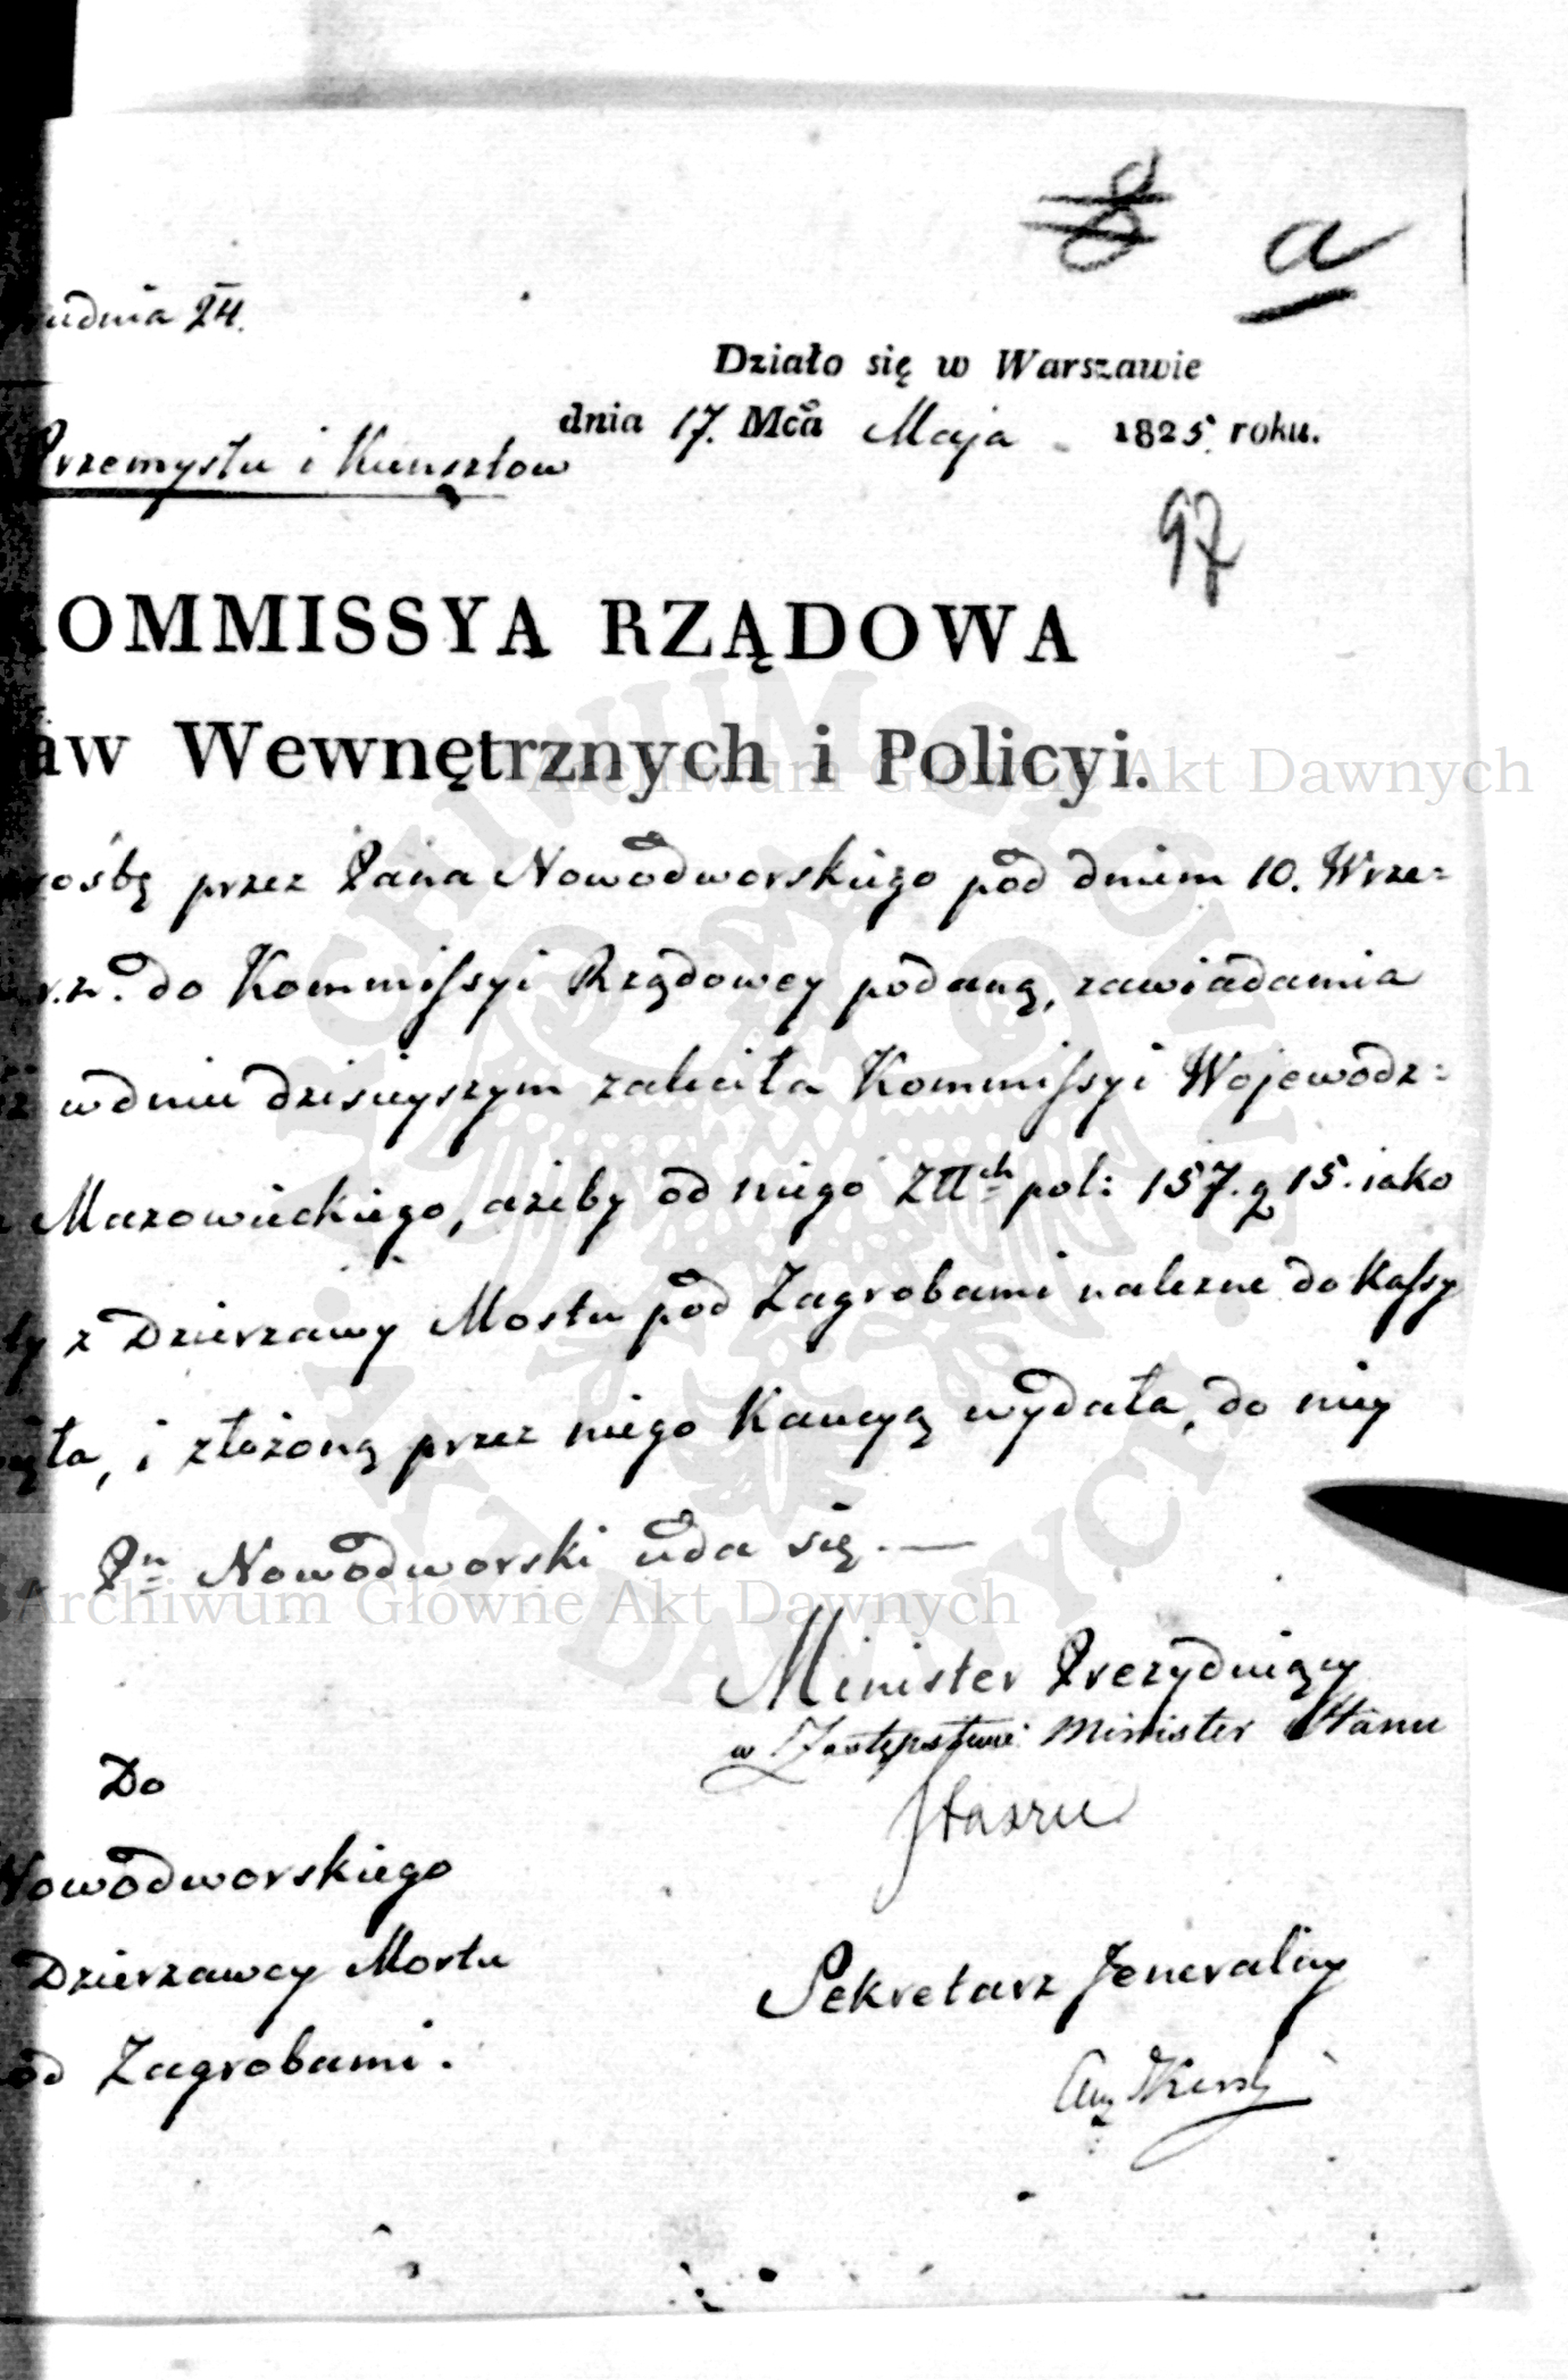 8 a
udnia 24.
Działo się w Warszawie
dnia 17. Mca Maja 1825. roku.
Przemysłu i Kunsztow
97
KOMMISSYA RZĄDOWA
aw Wewnętrznych i Policyi.
rośbę przez Pana Nowodworskiego pod dniem 10. Wrze=
r.z. do Kommissyi Rządowey podaną, zawiadamia
iż w dniu dzisieyszym zaleciła Kommissyi Wojewodz=
Mazowieckiego, ażeby od niego Złłch pol: 157. g 15. iako
ty z Dzierzawy Mostu pod Zagrobami nalezne do Kassy
ięła, i złożoną przez niego Kaucyą wydała, do niey
Pn Nowodworski uda się. —
Minister Prezyduiący
w Zastępstwie Minister Stanu
Staszic
Do
Nowodworskiego
Dzierzawcy Mostu
od Zagrobami.
Sekretarz Jeneralny
Archiwum Główne Akt Dawnych
Archiwum Główne Akt Dawnych
ARCHIWUM GŁÓWNE AKT DAWNYCH